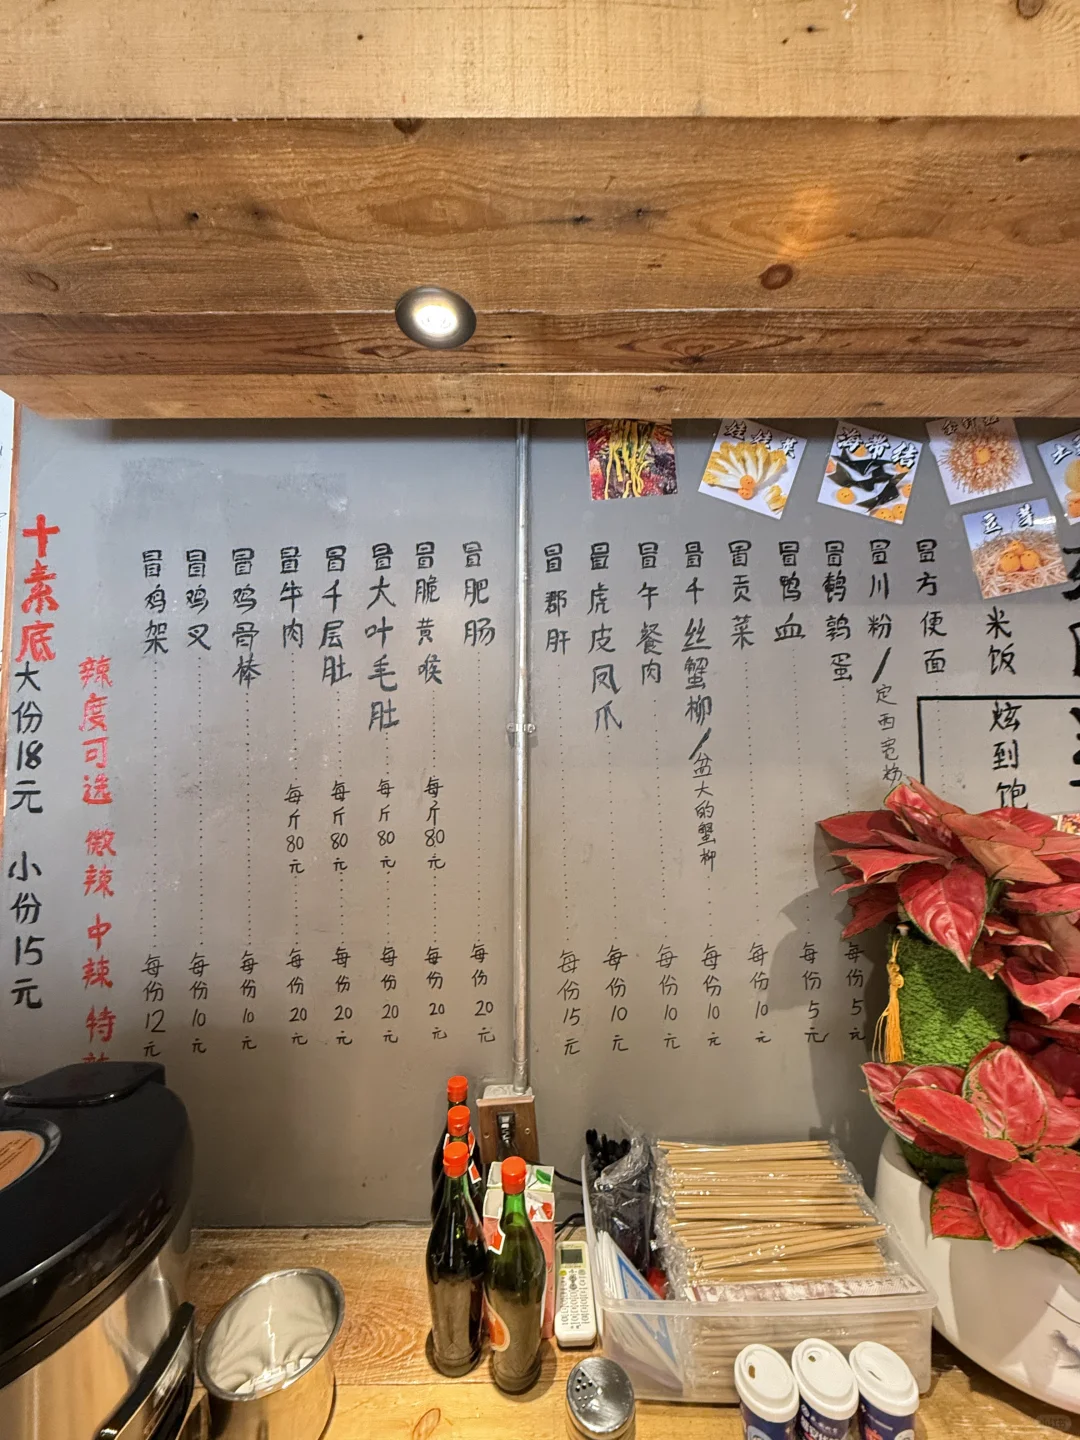 十素底
大份18元 小份15元
辣度可选 微辣 中辣 特辣
冒鸡架 每份12元
冒鸡叉 每份10元
冒鸡骨棒 每份10元
冒牛肉 每斤80元 每份20元
冒千层肚 每斤80元 每份20元
冒大叶毛肚 每斤80元 每份20元
冒脆黄喉 每斤80元 每份20元
冒肥肠 每份20元
冒郡肝 每份15元
冒虎皮凤爪 每份10元
冒午餐肉 每份10元
冒千丝蟹柳/盆大的蟹柳 每份10元
冒贡菜 每份10元
冒鸭血 每份5元
冒鹌鹑蛋 每份5元
冒川粉/定西宽粉
冒方便面
米饭
炫到饱
娃娃菜
海带结
豆芽